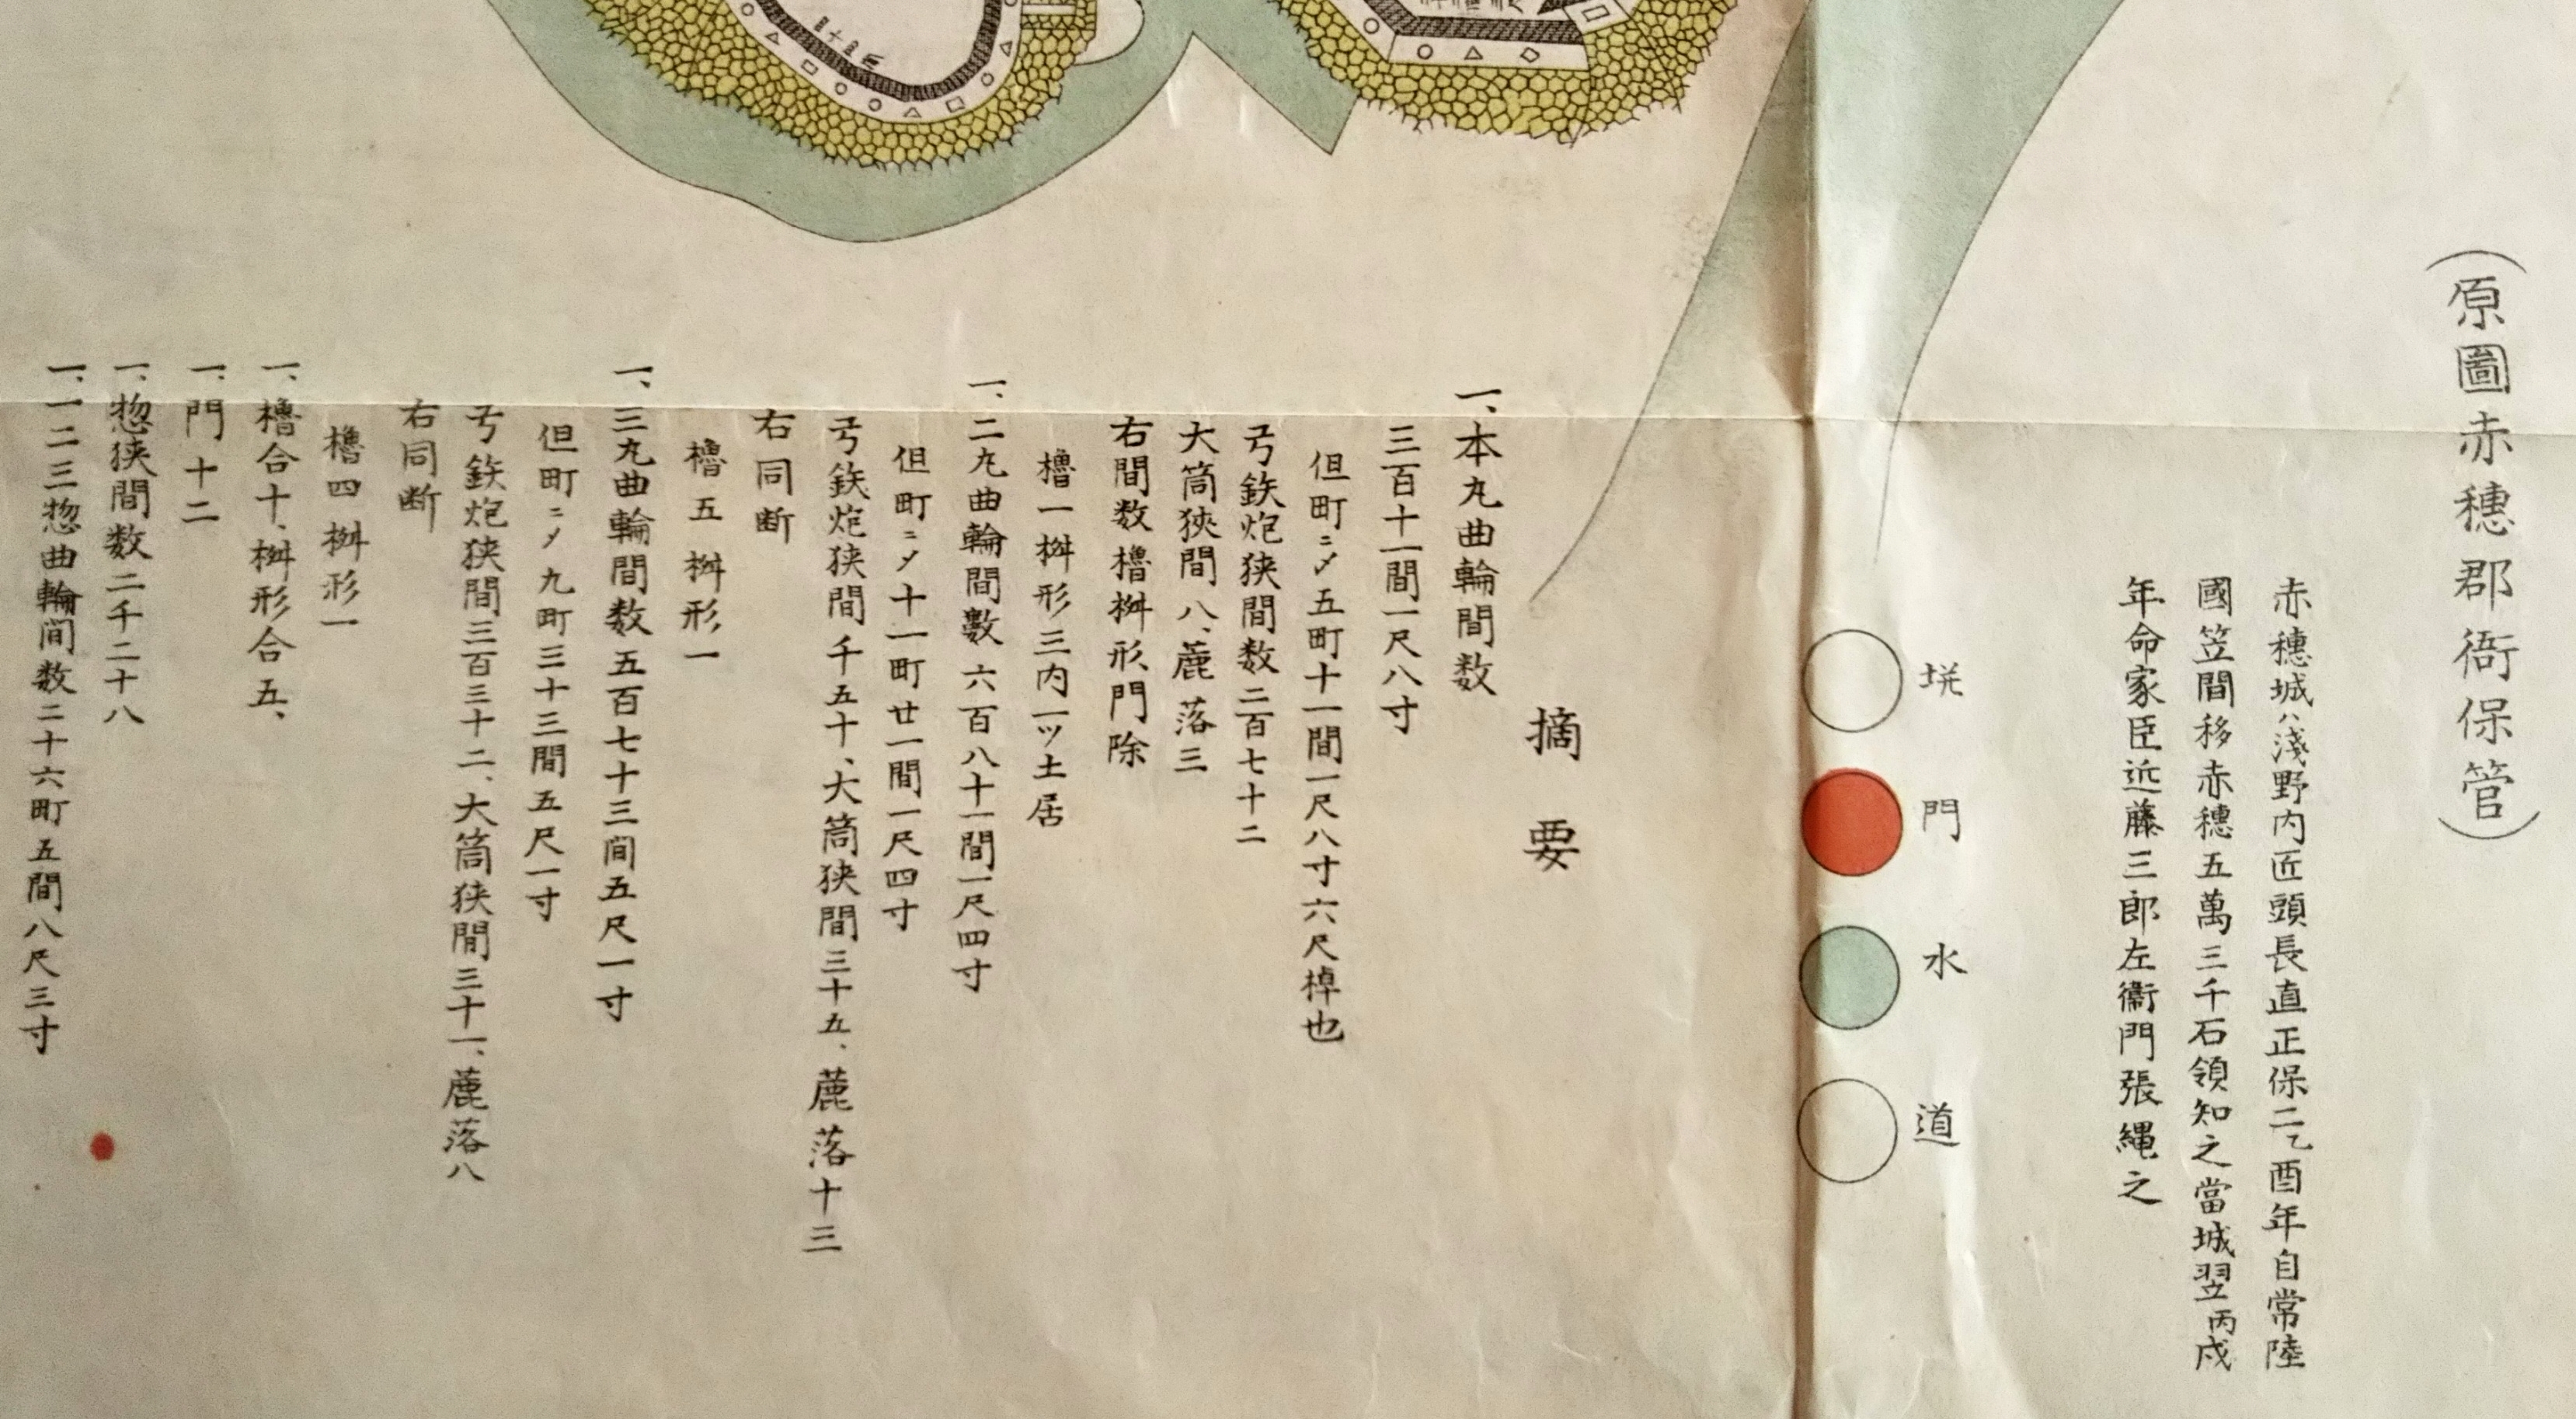 (原圖赤穗郡衙保管)
赤穗城ハ淺野内匠頭長直正保二乙酉年自常陸
國笠間移赤穗五萬三千石領知之當城翌丙戌
年命家臣近藤三郎左衞門張繩之
垙
門
水
道
摘要
一、本丸曲輪間数
三百十一間一尺八寸
但町ニ〆五町十一間一尺八寸六尺棹也
弓鉄炮狭間数二百七十二
大筒狹間八、麁落三
右間数櫓桝形門除
櫓一桝形三内一ツ土居
一、二丸曲輪間數六百八十一間一尺四寸
但町ニ〆十一町廿一間一尺四寸
弓鉄炮狭間千五十、大筒狭間三十五、麁落十三
右同断
櫓五桝形一
一、三丸曲輪間数五百七十三间五尺一寸
但町ニ〆九町三十三間五尺一寸
弓鉄炮狭間三百三十二、大筒狭間三十一、麁落八
右同断
櫓四桝形一
一、櫓合十、桝形合五、
一、門十二
一、惣狭間数二千二十八
一、一二三惣曲輪间数二十六町五間八尺三寸